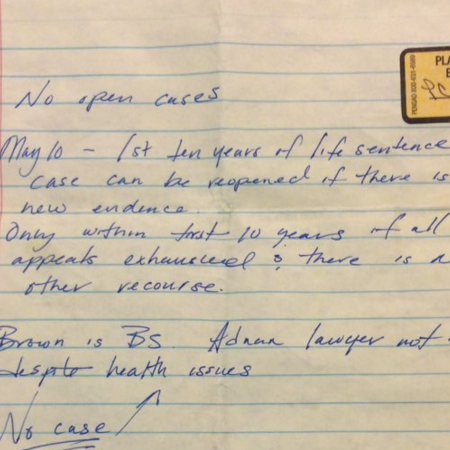 No open cases
PENGAD 800-631-6989
PLA
E
May 10 - 1st ten years of life sentence
case can be reopened if there is
new evidence.
Only within first 10 years if all
appeals exhausted & there is n
other recourse.
Brown is BS. Adnan lawyer not
despite health issues
No case